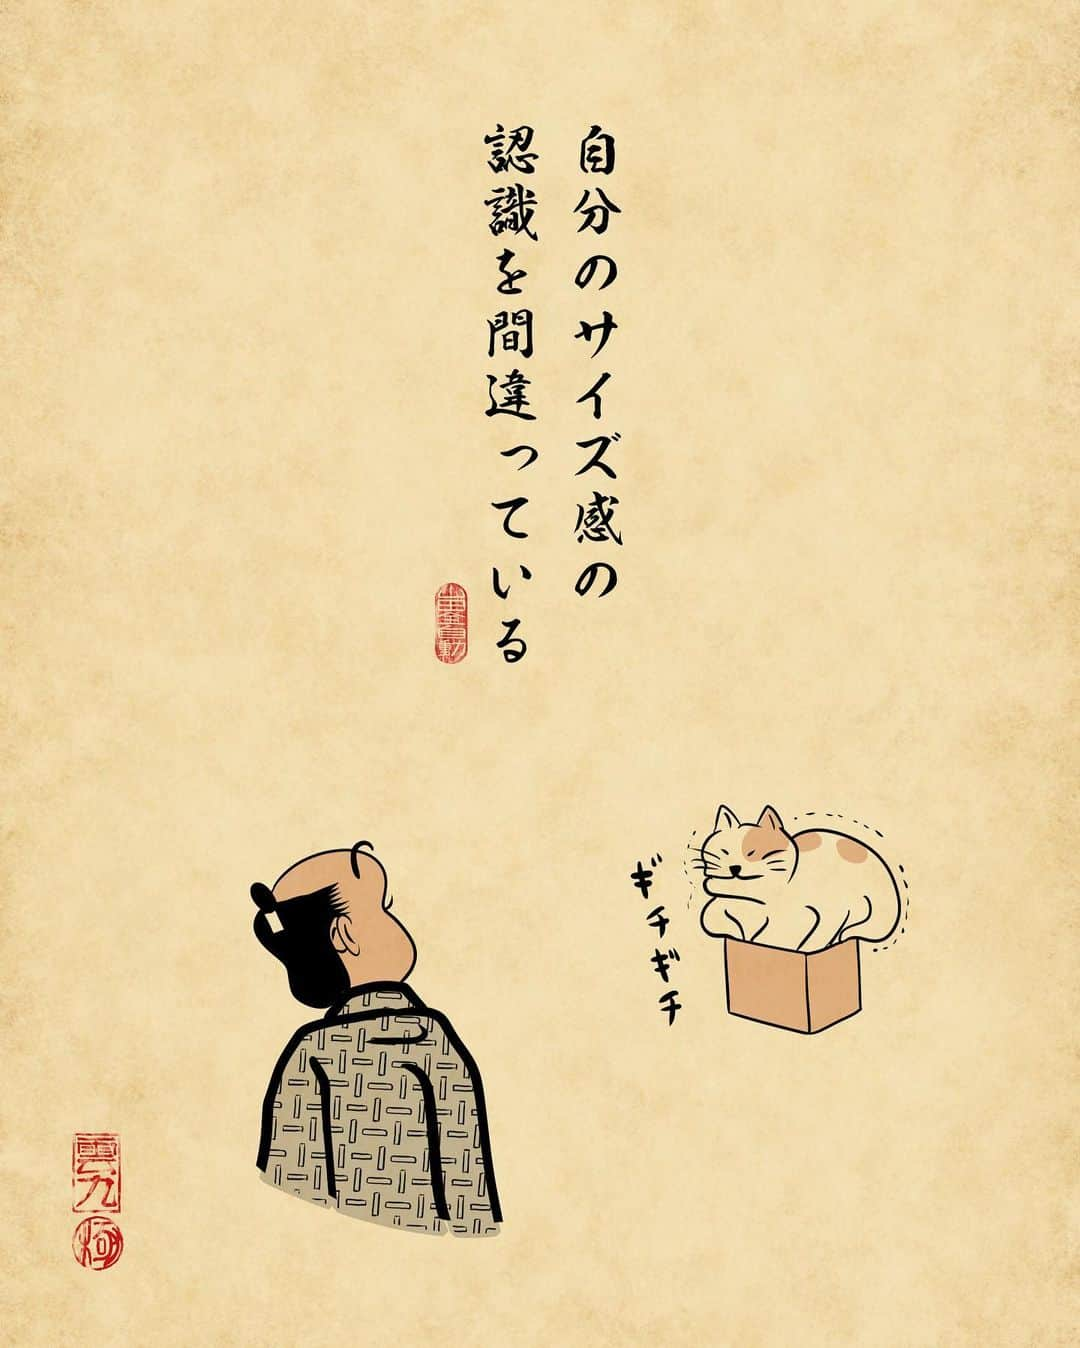 自分のサイズ感の
認識を間違っている
ギチギチ